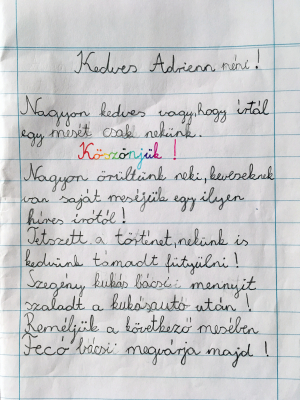 Kedves Adrienn néni!
Nagyon kedves vagy, hogy írtál
egy mesét csak nekünk.
Köszönjük!
Nagyon örültünk neki, keveseknek
van saját meséjük egy ilyen
híres írótól!
Tetszett a történet, nekünk is
kedvünk támadt fütyülni!
Szegény kukás bácsi: mennyit
szaladt a kukásautó után!
Reméljük a következő mesében
Fecó bácsi megvárja majd!